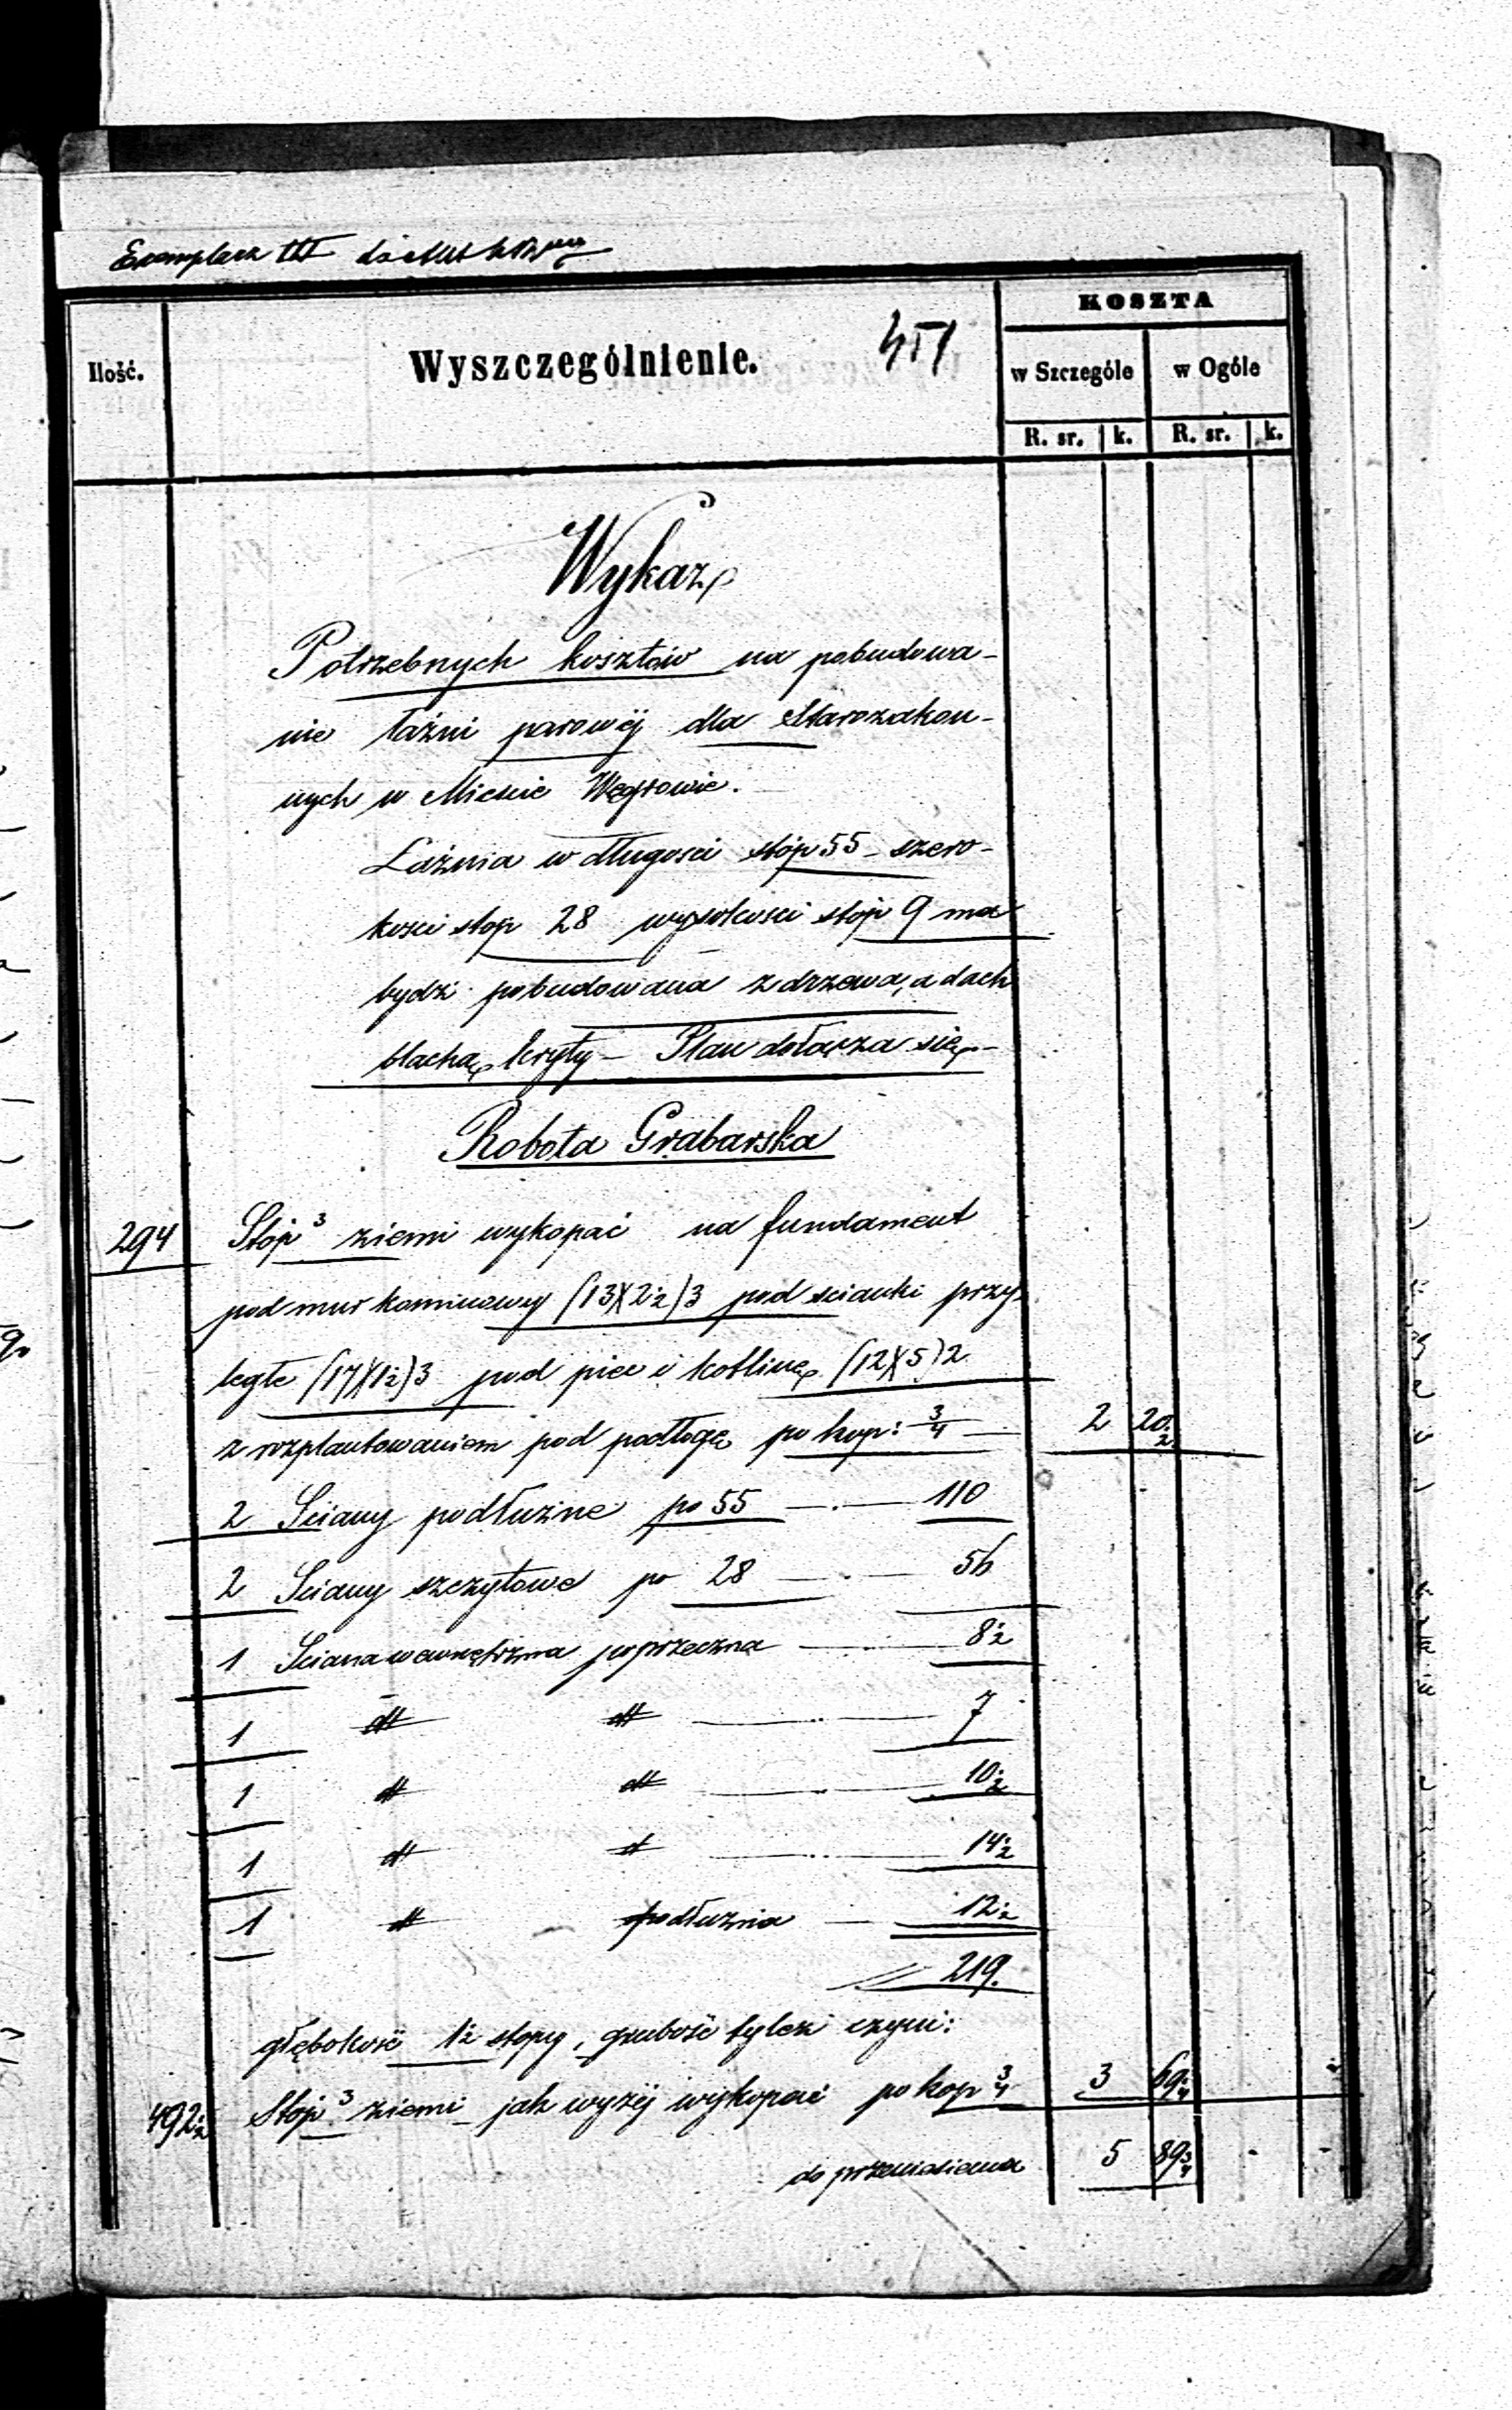 Exemplarz III
KOSZTA
Ilość. Wyszczególnienie. 451 w Szczególe w Ogóle
R. sr. k. R. sr. k.
Wykaz
Potrzebnych kosztów na pobudowa-
nie łaźni parowéj dla Starozakon-
nych w Mieście Węgrowie.
Łaźnia w długości stóp 55 - szero-
kości stóp 28 wysokości stóp 9 ma
bydź pobudowana z drzewa, a dach
blachą kryty - Plan dołącza się -
Robota Grabarska
294 Stóp³ ziemi wykopać na fundament
pod mur kominowy (13X2½)3 pod ścianki przy
ległe (17X1½)3 pod piec i kotlinę (12X5)2
z rozplantowaniem pod podłogę po kop: 3/4 — 2 20½
2 Sciany podłużne po 55 —.— 110
2 Sciany szczytowe po 28 —.— 56
1 Sciana wewnętrzna poprzeczna — 8½
1 dtt dtt — 7
1 dt dtt — 10½
1 dt dt — 14½
1 dt podłużnia — 12½
219.
głębokość 1½ stopy, grubość tyleż czyni:
492½ Stóp³ ziemi jak wyżéj wykopać po kop 3/4 3 69¼
do przeniesienia 5 89¾ - -